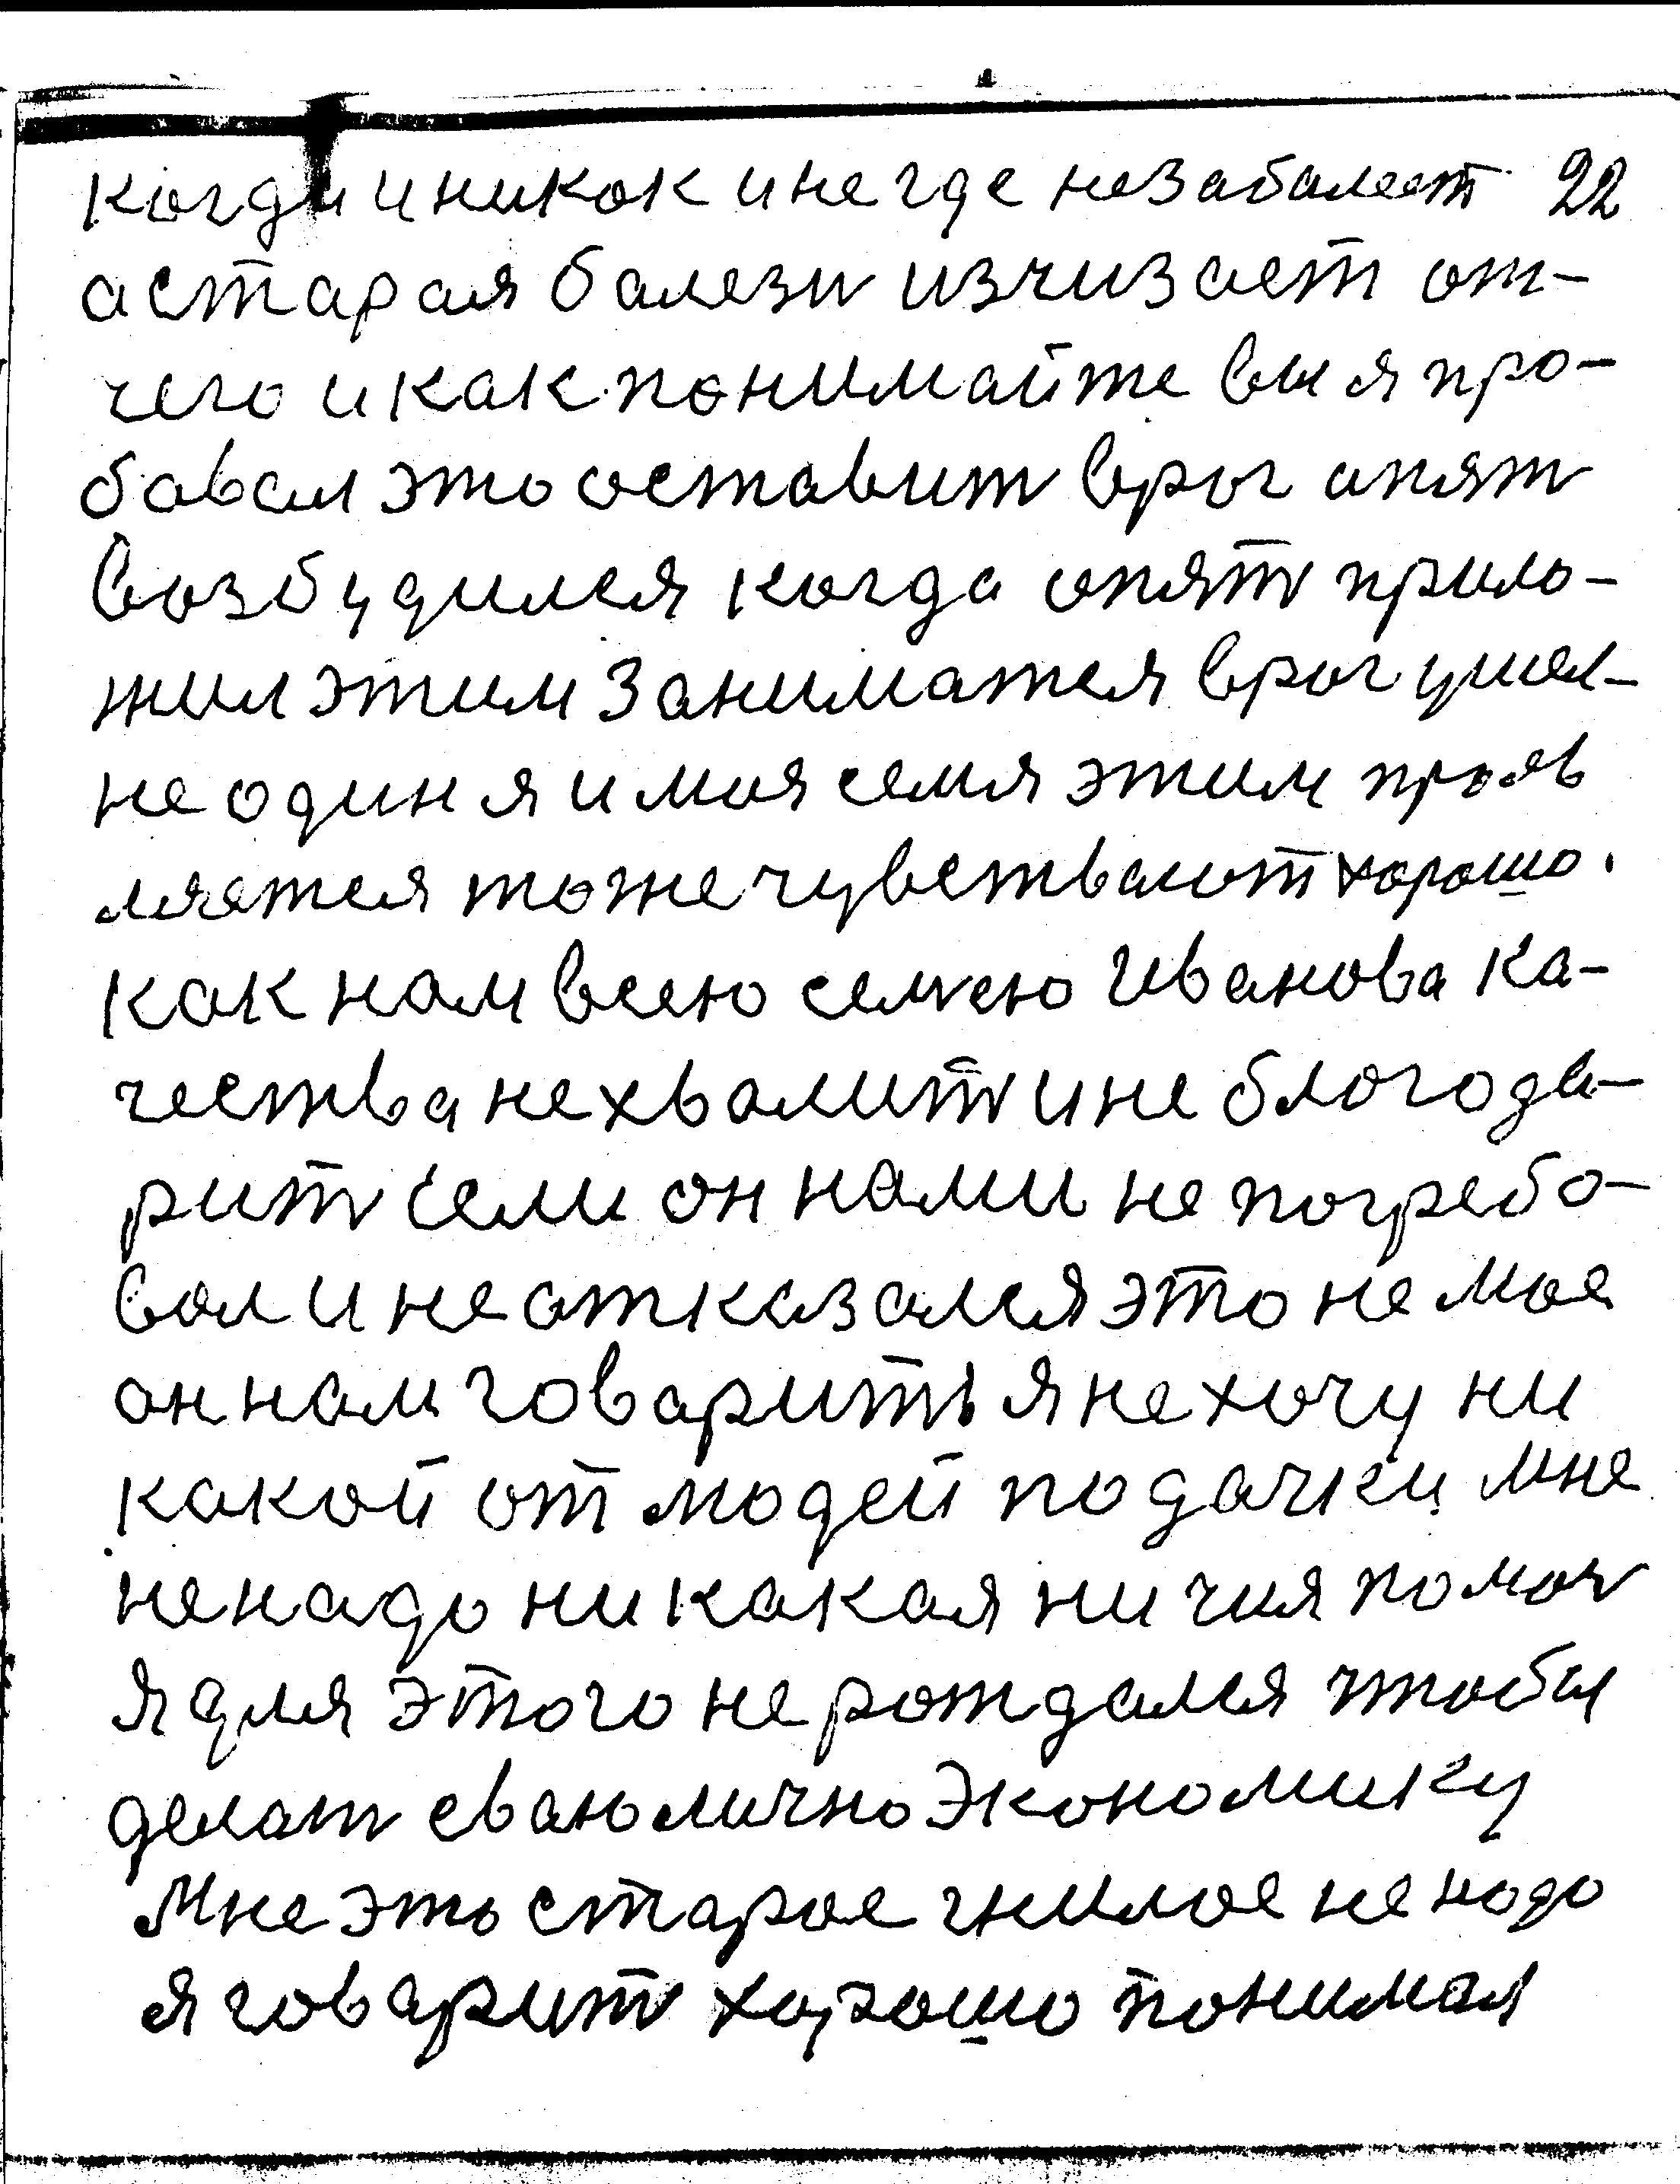 когда и никак и не где не забалеет 22
а старая балезн изчизает от-
чего и как понимайте вы я про-
бавал это оставит врог апят
возбудился когда опят прило-
жил этим заниматся врог ушел-
не один я и моя семя этим прояв
ляятся тоже чувствают хорошо.
как нам всею семею Иванова ка-
чества не хвалит и не благода-
рит если он нами не погребо-
вал и не отказался это не мое
он нам говарить я не хочу ни
какой от людей подачки мне
не надо ни какая ни чия помоч
я для этого не рождался чтобы
делат сваю лично экономику
Мне это старое гнилое не надо
я говарит хорошо понимал